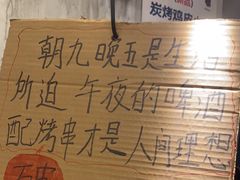 炭烤鸡皮
朝九晚五是生活
所迫 午夜的啤酒
配烤串才是人间理想